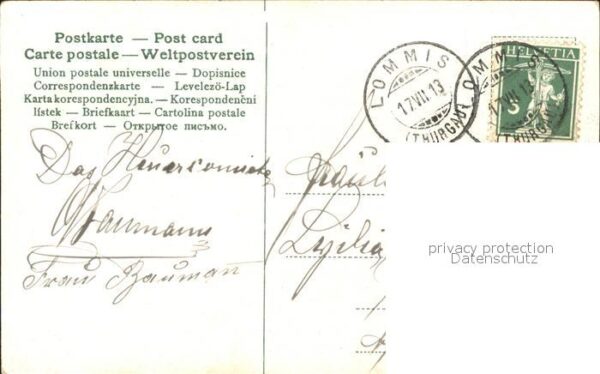 Postkarte — Post card
Carte postale — Weltpostverein
Union postale universelle — Dopisnice
Correspondenzkarte — Levelező-Lap
Karta korespondencyjna. — Korespondenční
lístek — Briefkaart — Cartolina postale
Brefkort — Открытое письмо.
LOMMIS
17.VII.13
(THURGAU)
HELVETIA
5
OMMIS
17.VII.13
(THURGAU)
Das
Baumann
Frau Bauman
Fräul
privacy protection
Datenschutz